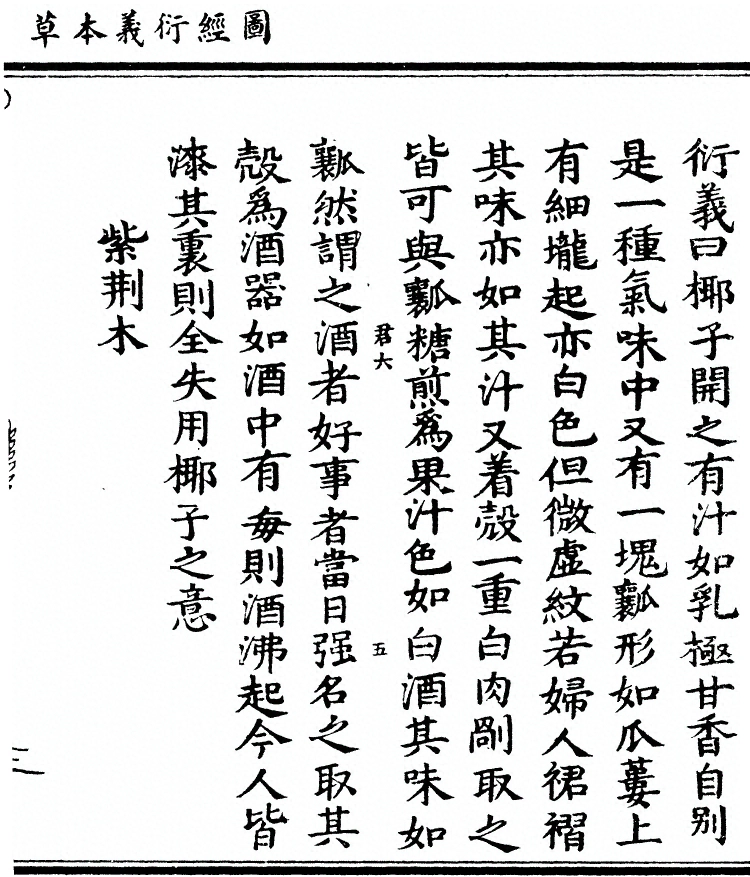 圖經衍義本草
衍義曰椰子開之有汁如乳極甘香自别
是一種氣味中又有一塊瓤形如瓜蔞上
有細壠起亦白色但微虛紋若婦人裙褶
其味亦如其汁又着殼一重白肉剮取之
皆可與瓤糖煎爲果汁色如白酒其味如
君六 五
瓤然謂之酒者好事者當日强名之取其
殼爲酒器如酒中有毎則酒沸起今人皆
漆其裏則全失用椰子之意
紫荆木
三